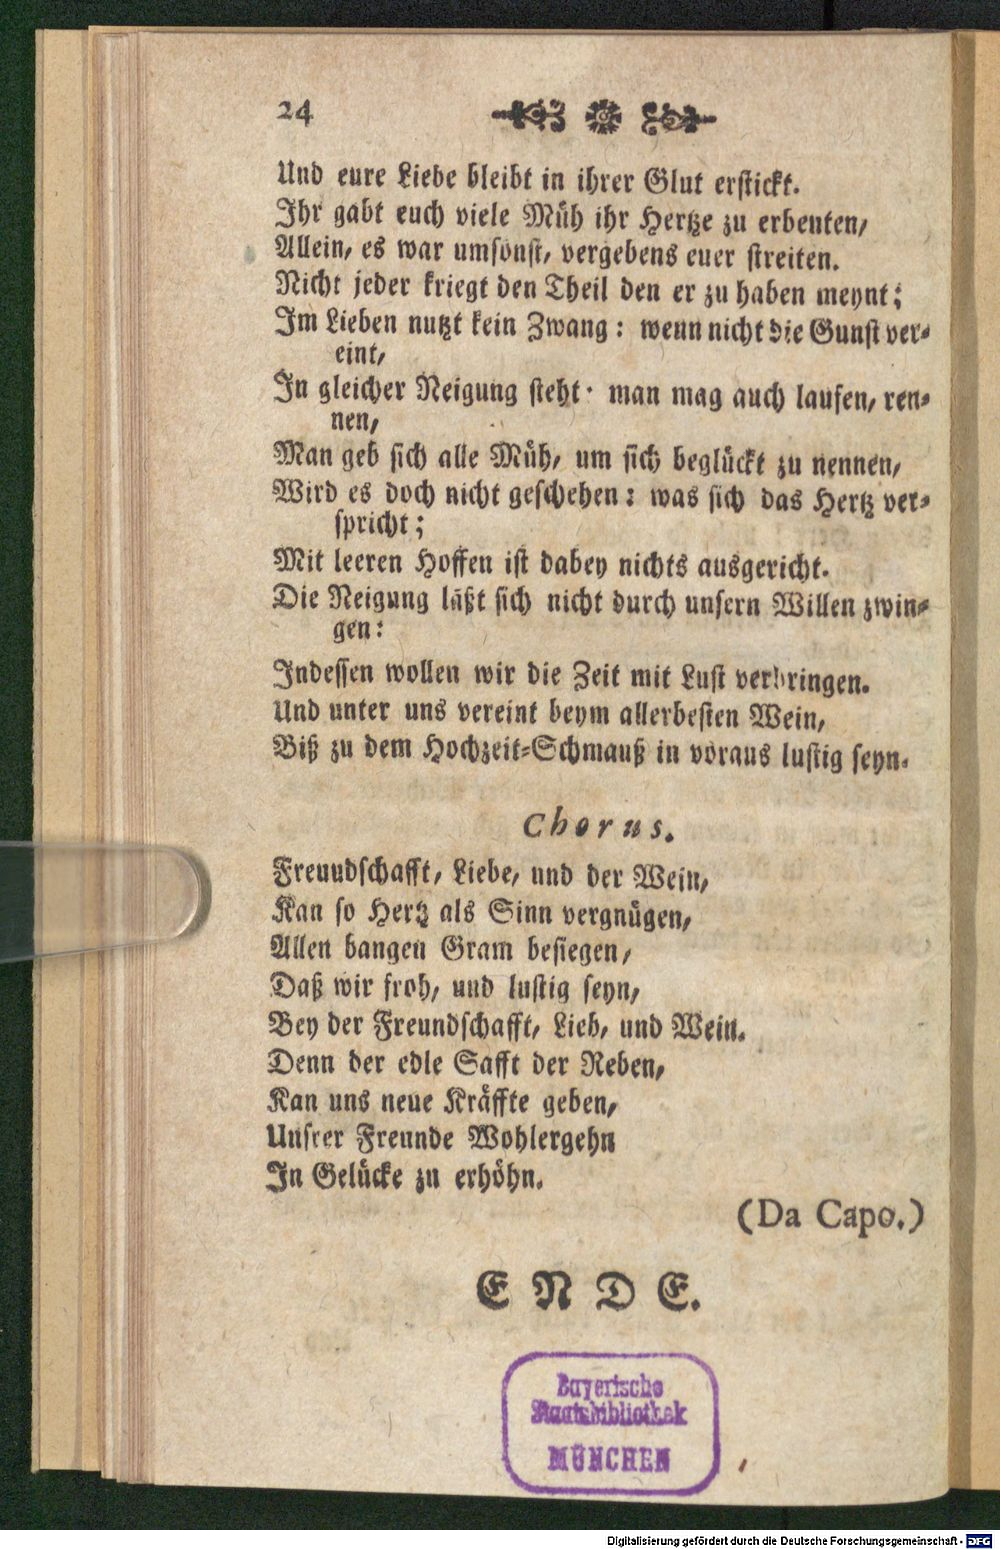 24
Und eure Liebe bleibt in ihrer Glut erstickt.
Ihr gabt euch viele Müh ihr Hertze zu erbeuten,
Allein, es war umsonst, vergebens euer streiten.
Nicht jeder kriegt den Theil den er zu haben meynt;
Im Lieben nutzt kein Zwang: wenn nicht die Gunst ver-
eint,
In gleicher Neigung steht· man mag auch laufen, ren-
nen,
Man geb sich alle Müh, um sich beglückt zu nennen,
Wird es doch nicht geschehen: was sich das Hertz ver-
spricht;
Mit leeren Hoffen ist dabey nichts ausgericht.
Die Neigung läßt sich nicht durch unsern Willen zwin-
gen:
Indessen wollen wir die Zeit mit Lust verbringen.
Und unter uns vereint beym allerbesten Wein,
Biß zu dem Hochzeit-Schmauß in voraus lustig seyn.
Chorus.
Freuudschafft, Liebe, und der Wein,
Kan so Hertz als Sinn vergnügen,
Allen bangen Gram besiegen,
Daß wir froh, und lustig seyn,
Bey der Freundschafft, Lieb, und Wein.
Denn der edle Safft der Reben,
Kan uns neue Kräffte geben,
Unsrer Freunde Wohlergehn
In Gelücke zu erhöhn.
(Da Capo.)
ENDE.
Bayerische
Staatsbibliothek
MÜNCHEN
Digitalisierung gefördert durch die Deutsche Forschungsgemeinschaft - DFG